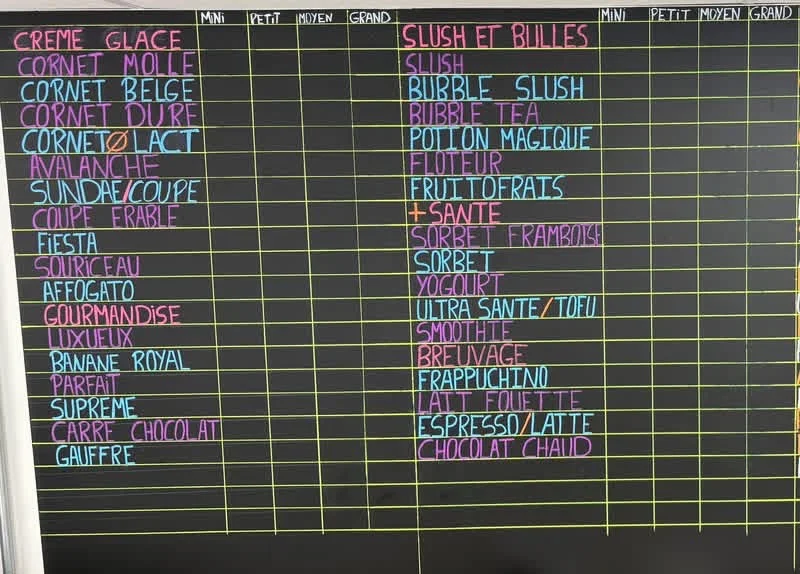 MiNi PETiT MOYEN GRAND
CREME GLACE
CORNET MOLLE
CORNET BELGE
CORNET DURE
CORNET Ø LACT
AVALANCHE
SUNDAE/COUPE
COUPE ERABLE
FiESTA
SOURiCEAU
AFFOGATO
GOURMANDiSE
LUXUEUX
BANANE ROYAL
PARFAiT
SUPREME
CARRE CHOCOLAT
GAUFFRE
MiNi PETiT MOYEN GRAND
SLUSH ET BULLES
SLUSH
BUBBLE SLUSH
BUBBLE TEA
POTION MAGIQUE
FLOTEUR
FRUITOFRAIS
+SANTE
SORBET FRAMBOISE
SORBET
YOGOURT
ULTRA SANTE/TOFU
SMOOTHIE
BREUVAGE
FRAPPUCHINO
LAIT FOUETTE
ESPRESSO/LATTE
CHOCOLAT CHAUD